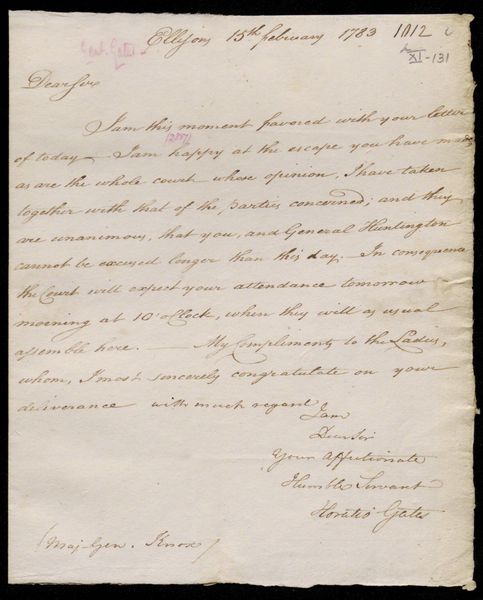 Ellisons 15th february 1783 1012
Genl. Gates
XI-131
Dear Sir
I am this moment favored with your letter
of today I am happy at the escape you have made,
as are the whole court whose opinion, I have taken
together with that of the Parties concerned; and they
are unanimous, that you, and General Huntington
cannot be excused longer than this day. In consequence
the Court will expect your attendance tomorrow
morning at 10 oClock, when they will as usual
assemble here. — My Compliments to the Ladies,
whom, I most sincerely congratulate on your
deliverance with much regard
I am
Dear Sir
Your Affectionate
Humble Servant
Horatio Gates
(Maj. Gen. Knox)